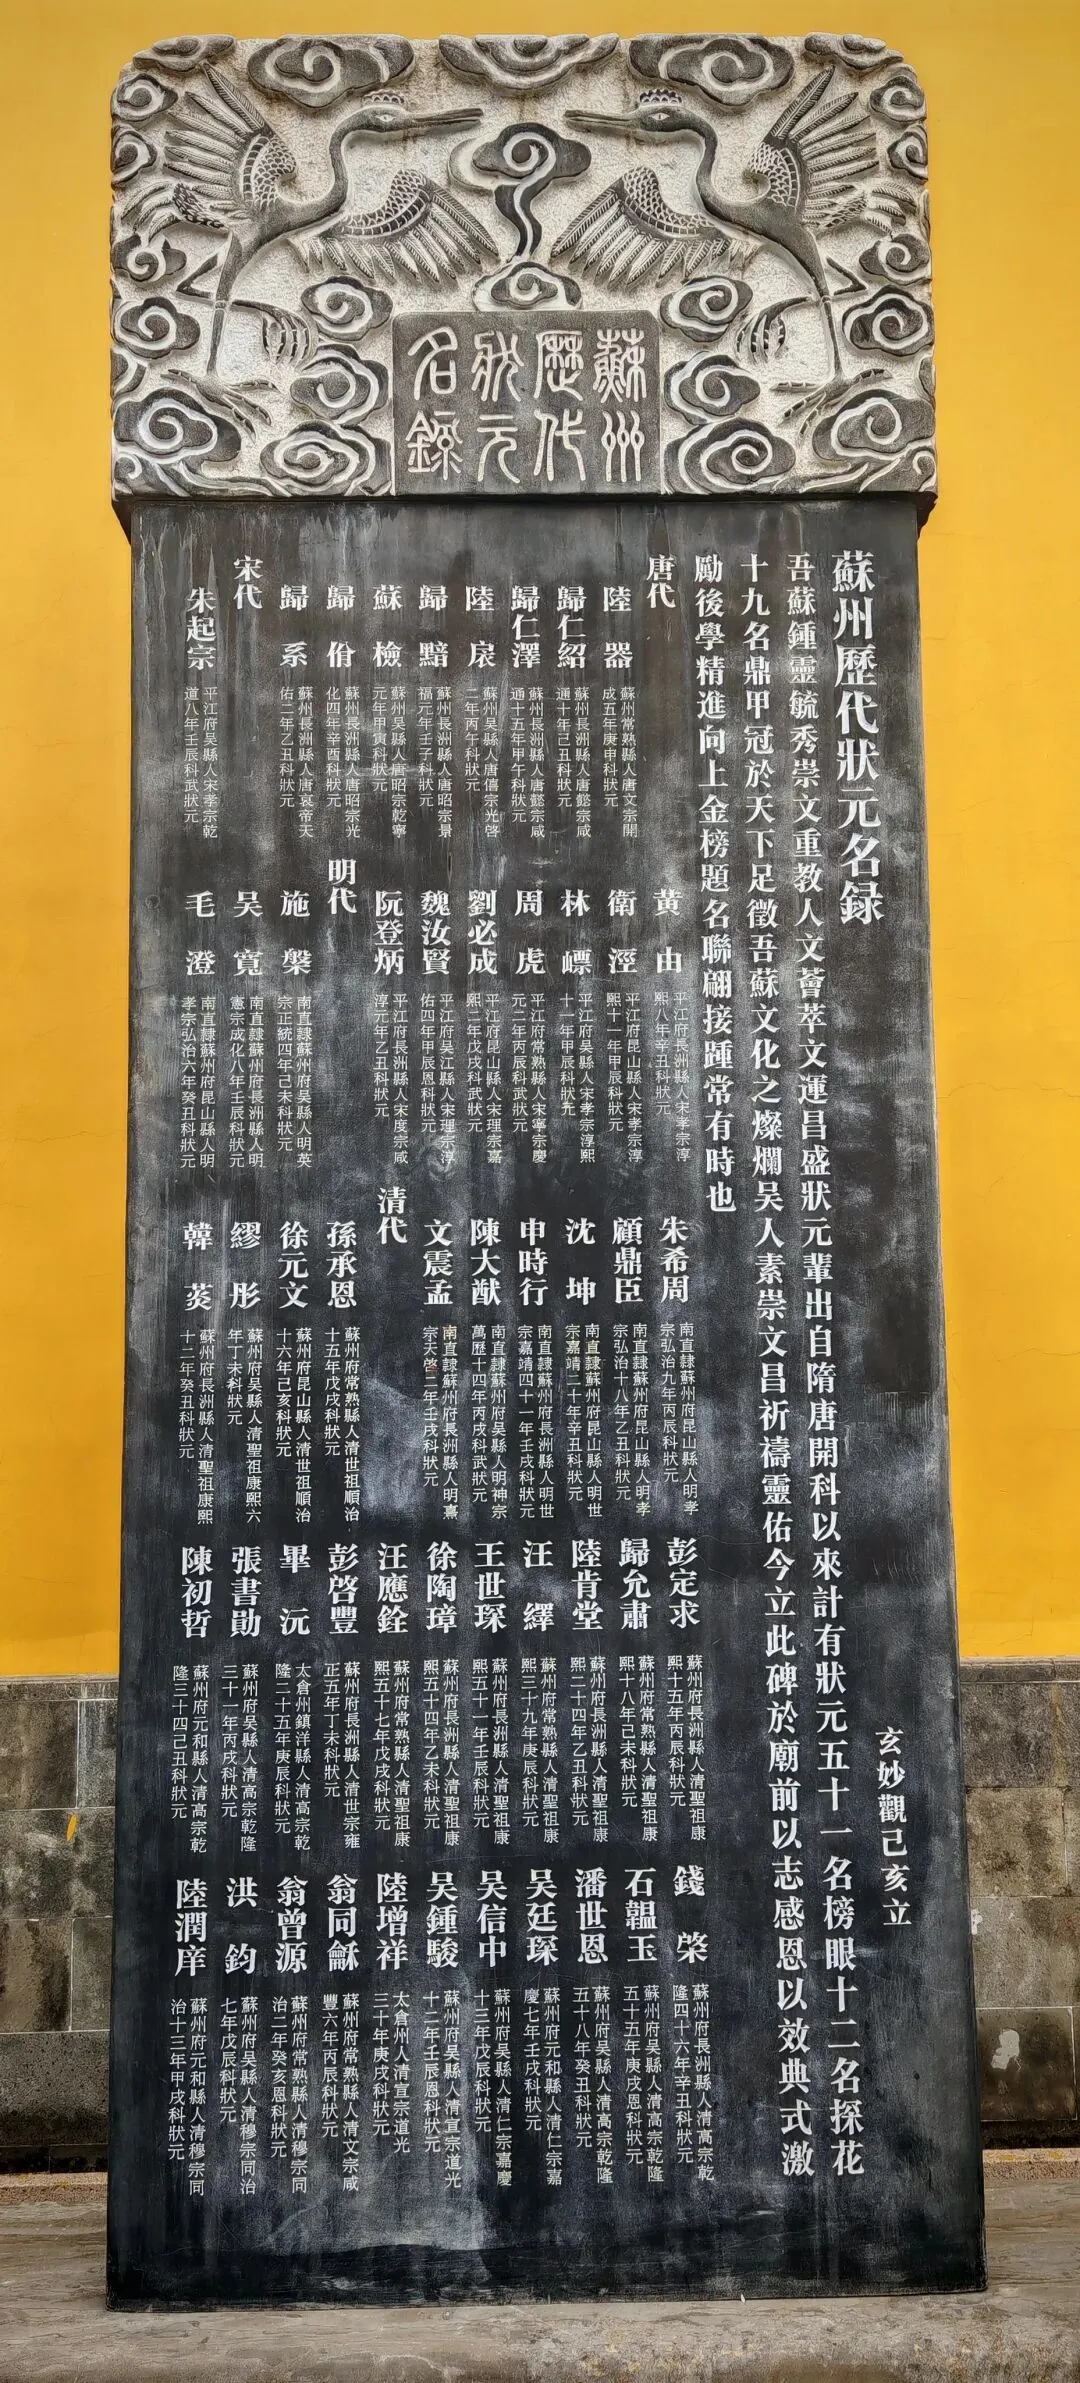 蘇州
歷代
狀元
名錄
蘇州歷代狀元名録
玄妙觀己亥立
吾蘇鍾靈毓秀崇文重教人文薈萃文運昌盛狀元輩出自隋唐開科以來計有狀元五十一名榜眼十二名探花
十九名鼎甲冠於天下足徵吾蘇文化之燦爛吴人素崇文昌祈禱靈佑今立此碑於廟前以志感恩以效典式激
勵後學精進向上金榜題名聯翩接踵常有時也
唐代
陸器
蘇州常熟縣人唐文宗開
成五年庚申科狀元
歸仁紹
蘇州長洲縣人唐懿宗咸
通十年己丑科狀元
歸仁澤
蘇州長洲縣人唐懿宗咸
通十五年甲午科狀元
陸扆
蘇州吴縣人唐僖宗光啓
二年丙午科狀元
歸黯
蘇州長洲縣人唐昭宗景
福元年壬子科狀元
蘇檢
蘇州吴縣人唐昭宗乾寧
元年甲寅科狀元
歸佾
蘇州長洲縣人唐昭宗光
化四年辛酉科狀元
歸系
蘇州長洲縣人唐哀帝天
佑二年乙丑科狀元
宋代
朱起宗
平江府吴縣人宋孝宗乾
道八年壬辰科武狀元
黄由
平江府長洲縣人宋孝宗淳
熙八年辛丑科狀元
衛涇
平江府昆山縣人宋孝宗淳
熙十一年甲辰科狀元
林嶂
平江府吴縣人宋孝宗淳熙
十一年甲辰科武狀元
周虎
平江府常熟縣人宋寧宗慶
元二年丙辰科武狀元
劉必成
平江府昆山縣人宋理宗嘉
熙二年戊戌科武狀元
魏汝賢
平江府吴江縣人宋理宗淳
佑四年甲辰恩科狀元
阮登炳
平江府長洲縣人宋度宗咸
淳元年乙丑科狀元
明代
施槃
南直隸蘇州府吴縣人明英
宗正統四年己未科狀元
吴寬
南直隸蘇州府長洲縣人明
憲宗成化八年壬辰科狀元
毛澄
南直隸蘇州府昆山縣人明
孝宗弘治六年癸丑科狀元
朱希周
南直隸蘇州府昆山縣人明孝
宗弘治九年丙辰科狀元
顧鼎臣
南直隸蘇州府昆山縣人明孝
宗弘治十八年乙丑科狀元
沈坤
南直隸蘇州府昆山縣人明世
宗嘉靖二十年辛丑科狀元
申時行
南直隸蘇州府長洲縣人明世
宗嘉靖四十一年壬戌科狀元
陳大猷
南直隸蘇州府吴縣人明神宗
萬歷十四年丙戌科武狀元
文震孟
南直隸蘇州府長洲縣人明熹
宗天啓二年壬戌科狀元
清代
孫承恩
蘇州府常熟縣人清世祖順治
十五年戊戌科狀元
徐元文
蘇州府昆山縣人清世祖順治
十六年己亥科狀元
繆彤
蘇州府吴縣人清聖祖康熙六
年丁未科狀元
韓菼
蘇州府長洲縣人清聖祖康熙
十二年癸丑科狀元
彭定求
蘇州府長洲縣人清聖祖康
熙十五年丙辰科狀元
歸允肅
蘇州府常熟縣人清聖祖康
熙十八年己未科狀元
陸肯堂
蘇州府長洲縣人清聖祖康
熙二十四年乙丑科狀元
汪繹
蘇州府常熟縣人清聖祖康
熙三十九年庚辰科狀元
王世琛
蘇州府長洲縣人清聖祖康
熙五十一年壬辰科狀元
徐陶璋
蘇州府長洲縣人清聖祖康
熙五十四年乙未科狀元
汪應銓
蘇州府常熟縣人清聖祖康
熙五十七年戊戌科狀元
彭啓豐
蘇州府長洲縣人清世宗雍
正五年丁未科狀元
畢沅
太倉州鎮洋縣人清高宗乾
隆二十五年庚辰科狀元
張書勛
蘇州府吴縣人清高宗乾隆
三十一年丙戌科狀元
陳初哲
蘇州府元和縣人清高宗乾
隆三十四己丑科狀元
錢棨
蘇州府長洲縣人清高宗乾
隆四十六年辛丑科狀元
石韞玉
蘇州府吴縣人清高宗乾隆
五十五年庚戌恩科狀元
潘世恩
蘇州府吴縣人清高宗乾隆
五十八年癸丑科狀元
吴廷琛
蘇州府元和縣人清仁宗嘉
慶七年壬戌科狀元
吴信中
蘇州府吴縣人清仁宗嘉慶
十三年戊辰科狀元
吴鍾駿
蘇州府吴縣人清宣宗道光
十二年壬辰恩科狀元
陸增祥
太倉州人清宣宗道光
三十年庚戌科狀元
翁同龢
蘇州府常熟縣人清文宗咸
豐六年丙辰科狀元
翁曾源
蘇州府常熟縣人清穆宗同
治二年癸亥恩科狀元
洪鈞
蘇州府吴縣人清穆宗同治
七年戊辰科狀元
陸潤庠
蘇州府元和縣人清穆宗同
治十三年甲戌科狀元